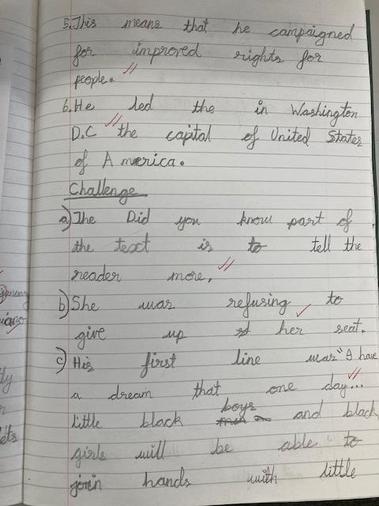 5. This means that he campaigned
for improved rights for
people.
6. He led the in Washington
D.C the capital of United States
of America.
Challenge
a) The Did you know part of
the text is to tell the
reader more.
b) She was refusing to
give up her seat.
c) His first line was "I have
a dream that one day...
little black boys and black
girls will be able to
join hands with little